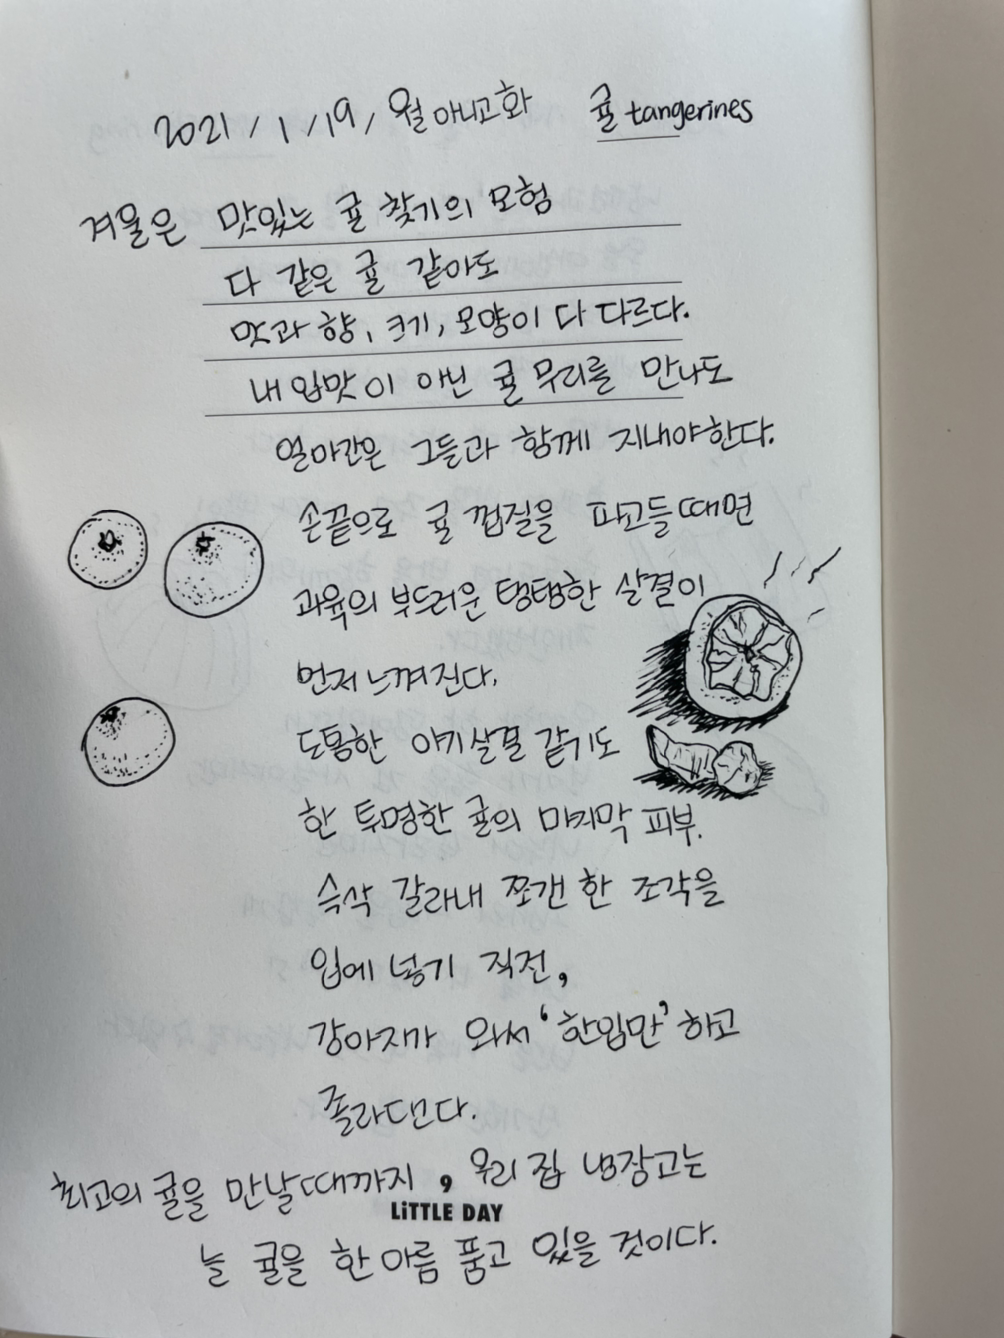 2021/1/19, 월 아니고 화 귤 tangerines
겨울은 맛있는 귤 찾기의 모험
다 같은 귤 같아도
맛과 향, 크기, 모양이 다 다르다.
내 입맛이 아닌 귤 무리를 만나도
얼마간은 그들과 함께 지내야한다.
손끝으로 귤 껍질을 파고들때면
과육의 부드러운 탱탱한 살결이
먼저 느껴진다.
도톰한 아기살결 같기도
한 투명한 귤의 마지막 피부.
슥삭 갈라내 쪼갠 한 조각을
입에 넣기 직전,
강아지가 와서 '한입만' 하고
졸라댄다.
최고의 귤을 만날때까지, 우리 집 냉장고는
LiTTLE DAY
늘 귤을 한아름 품고 있을 것이다.